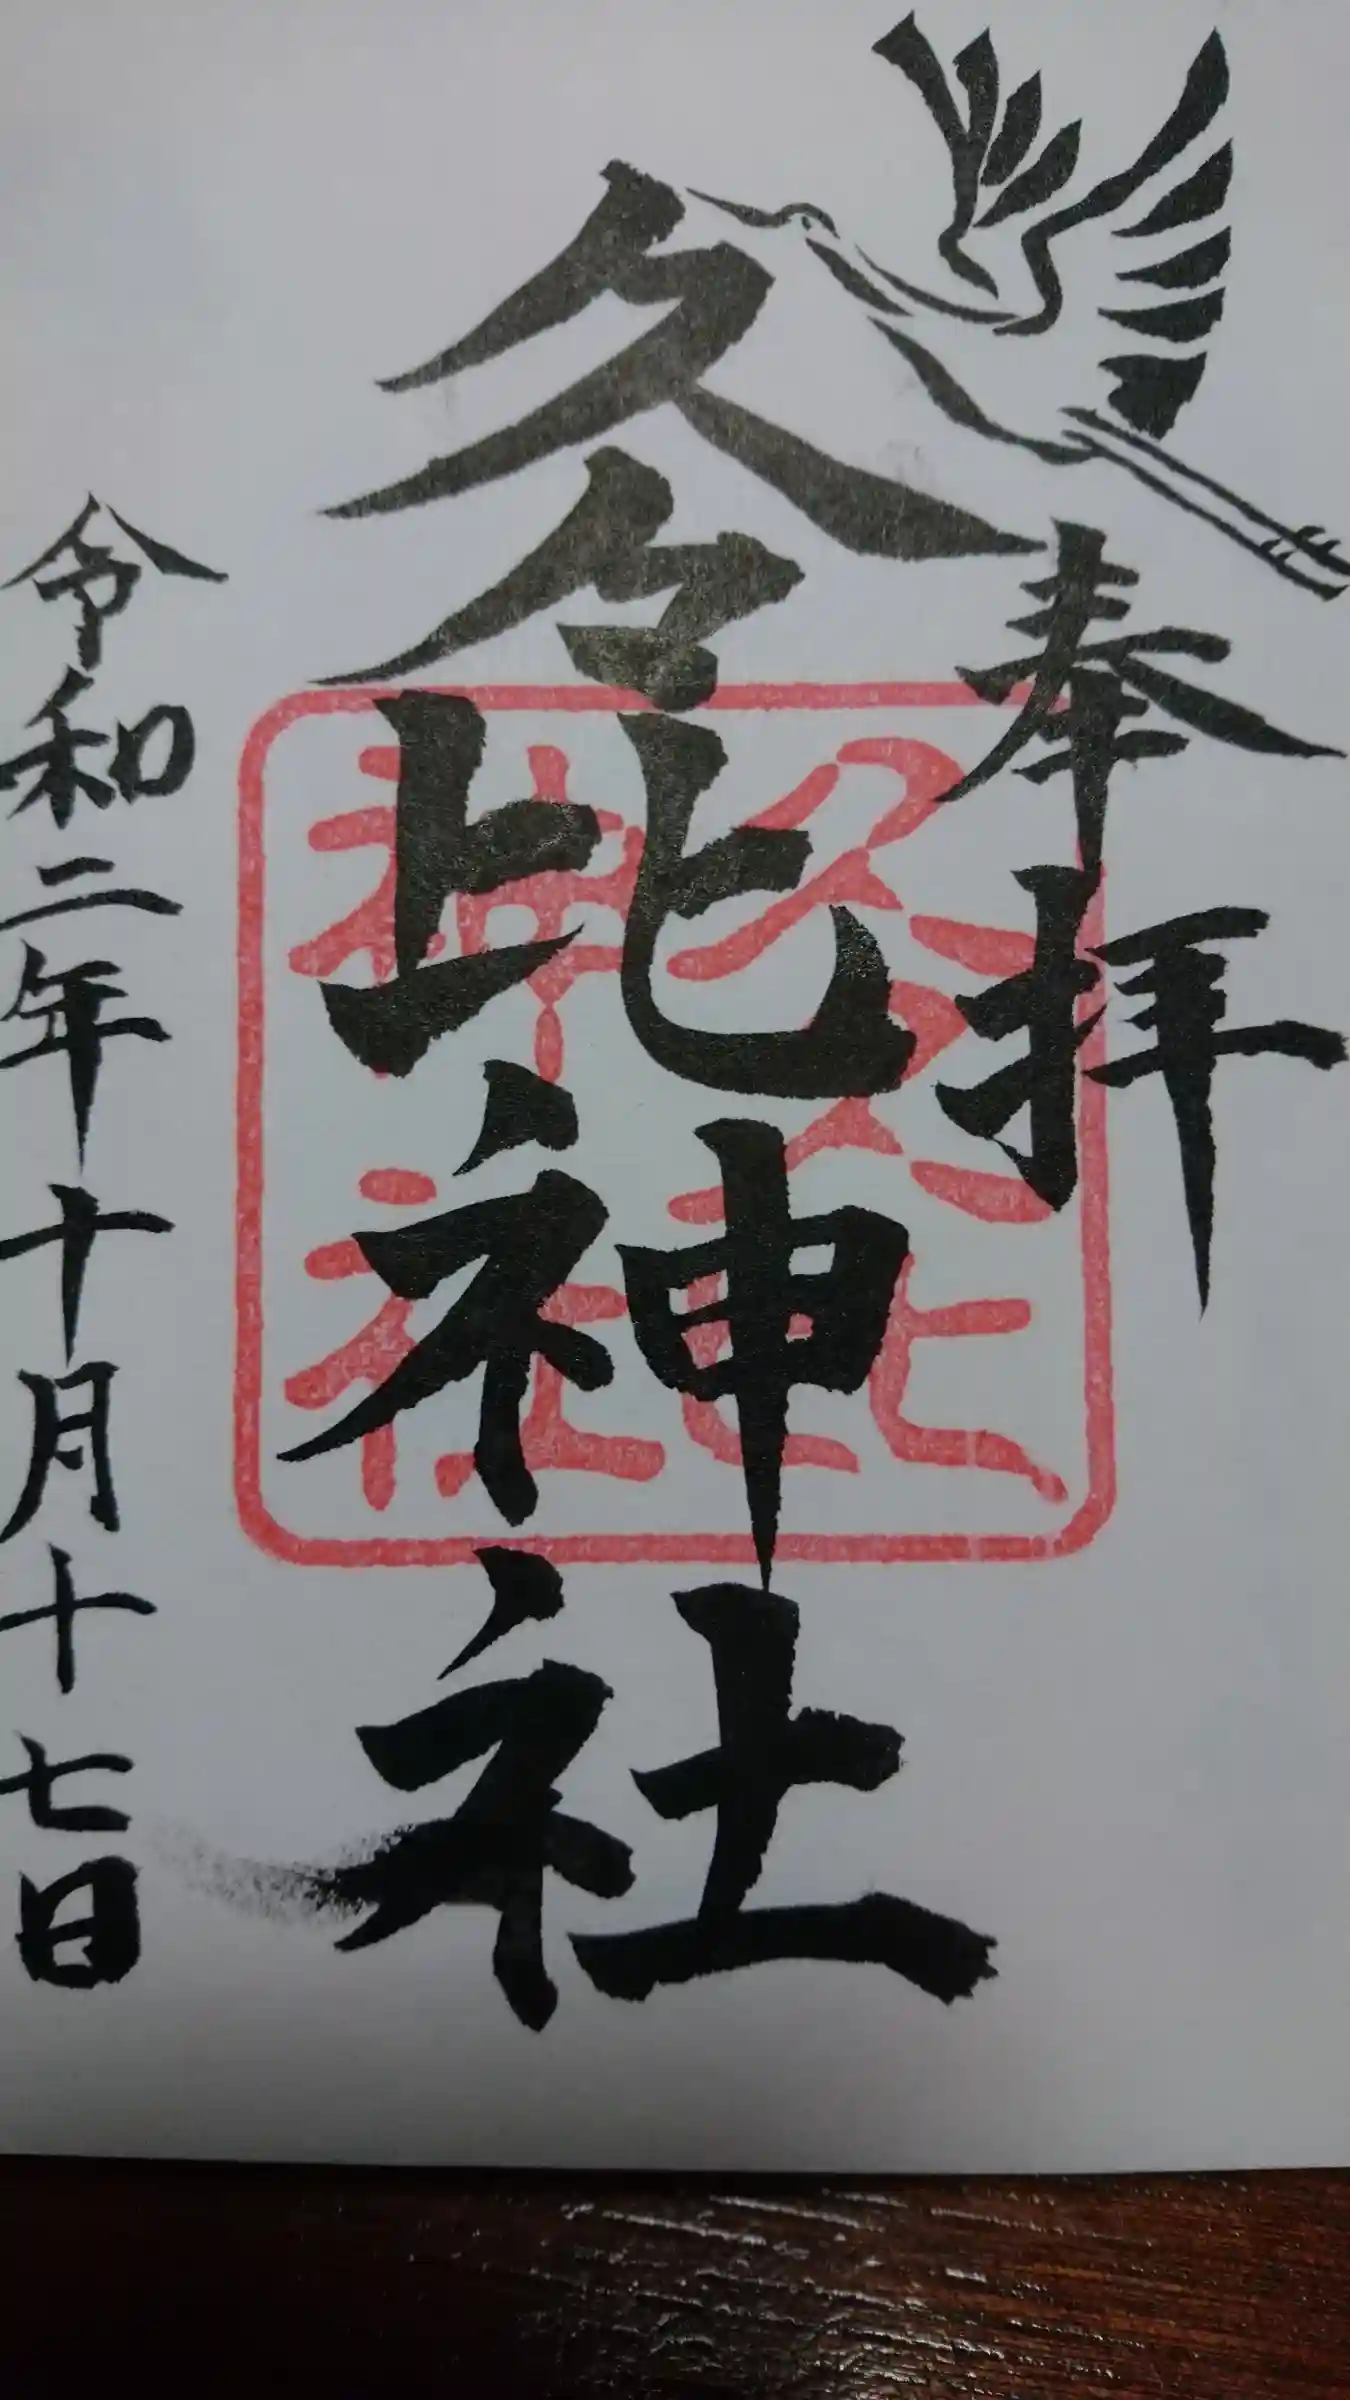 奉拝
久々比神社
久久比神社
令和二年十月十七日